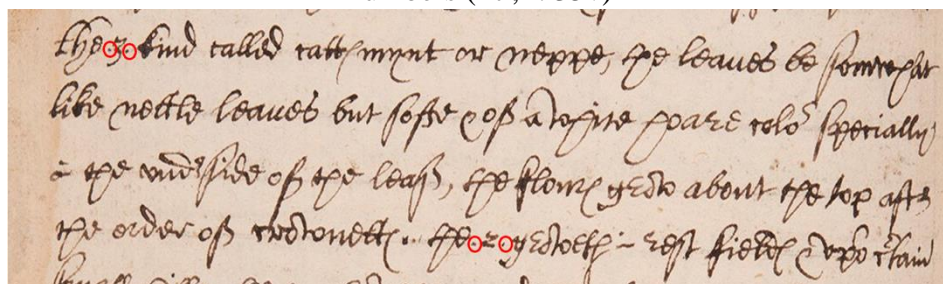 The .3. kind called catts mynt or neppe, the leaues be somewhat
like nettle leaues but softe & of a white hoare color specially
the underside of the leaf, the flours grow about the top after
the order of the .2. groweth rest fields & upo